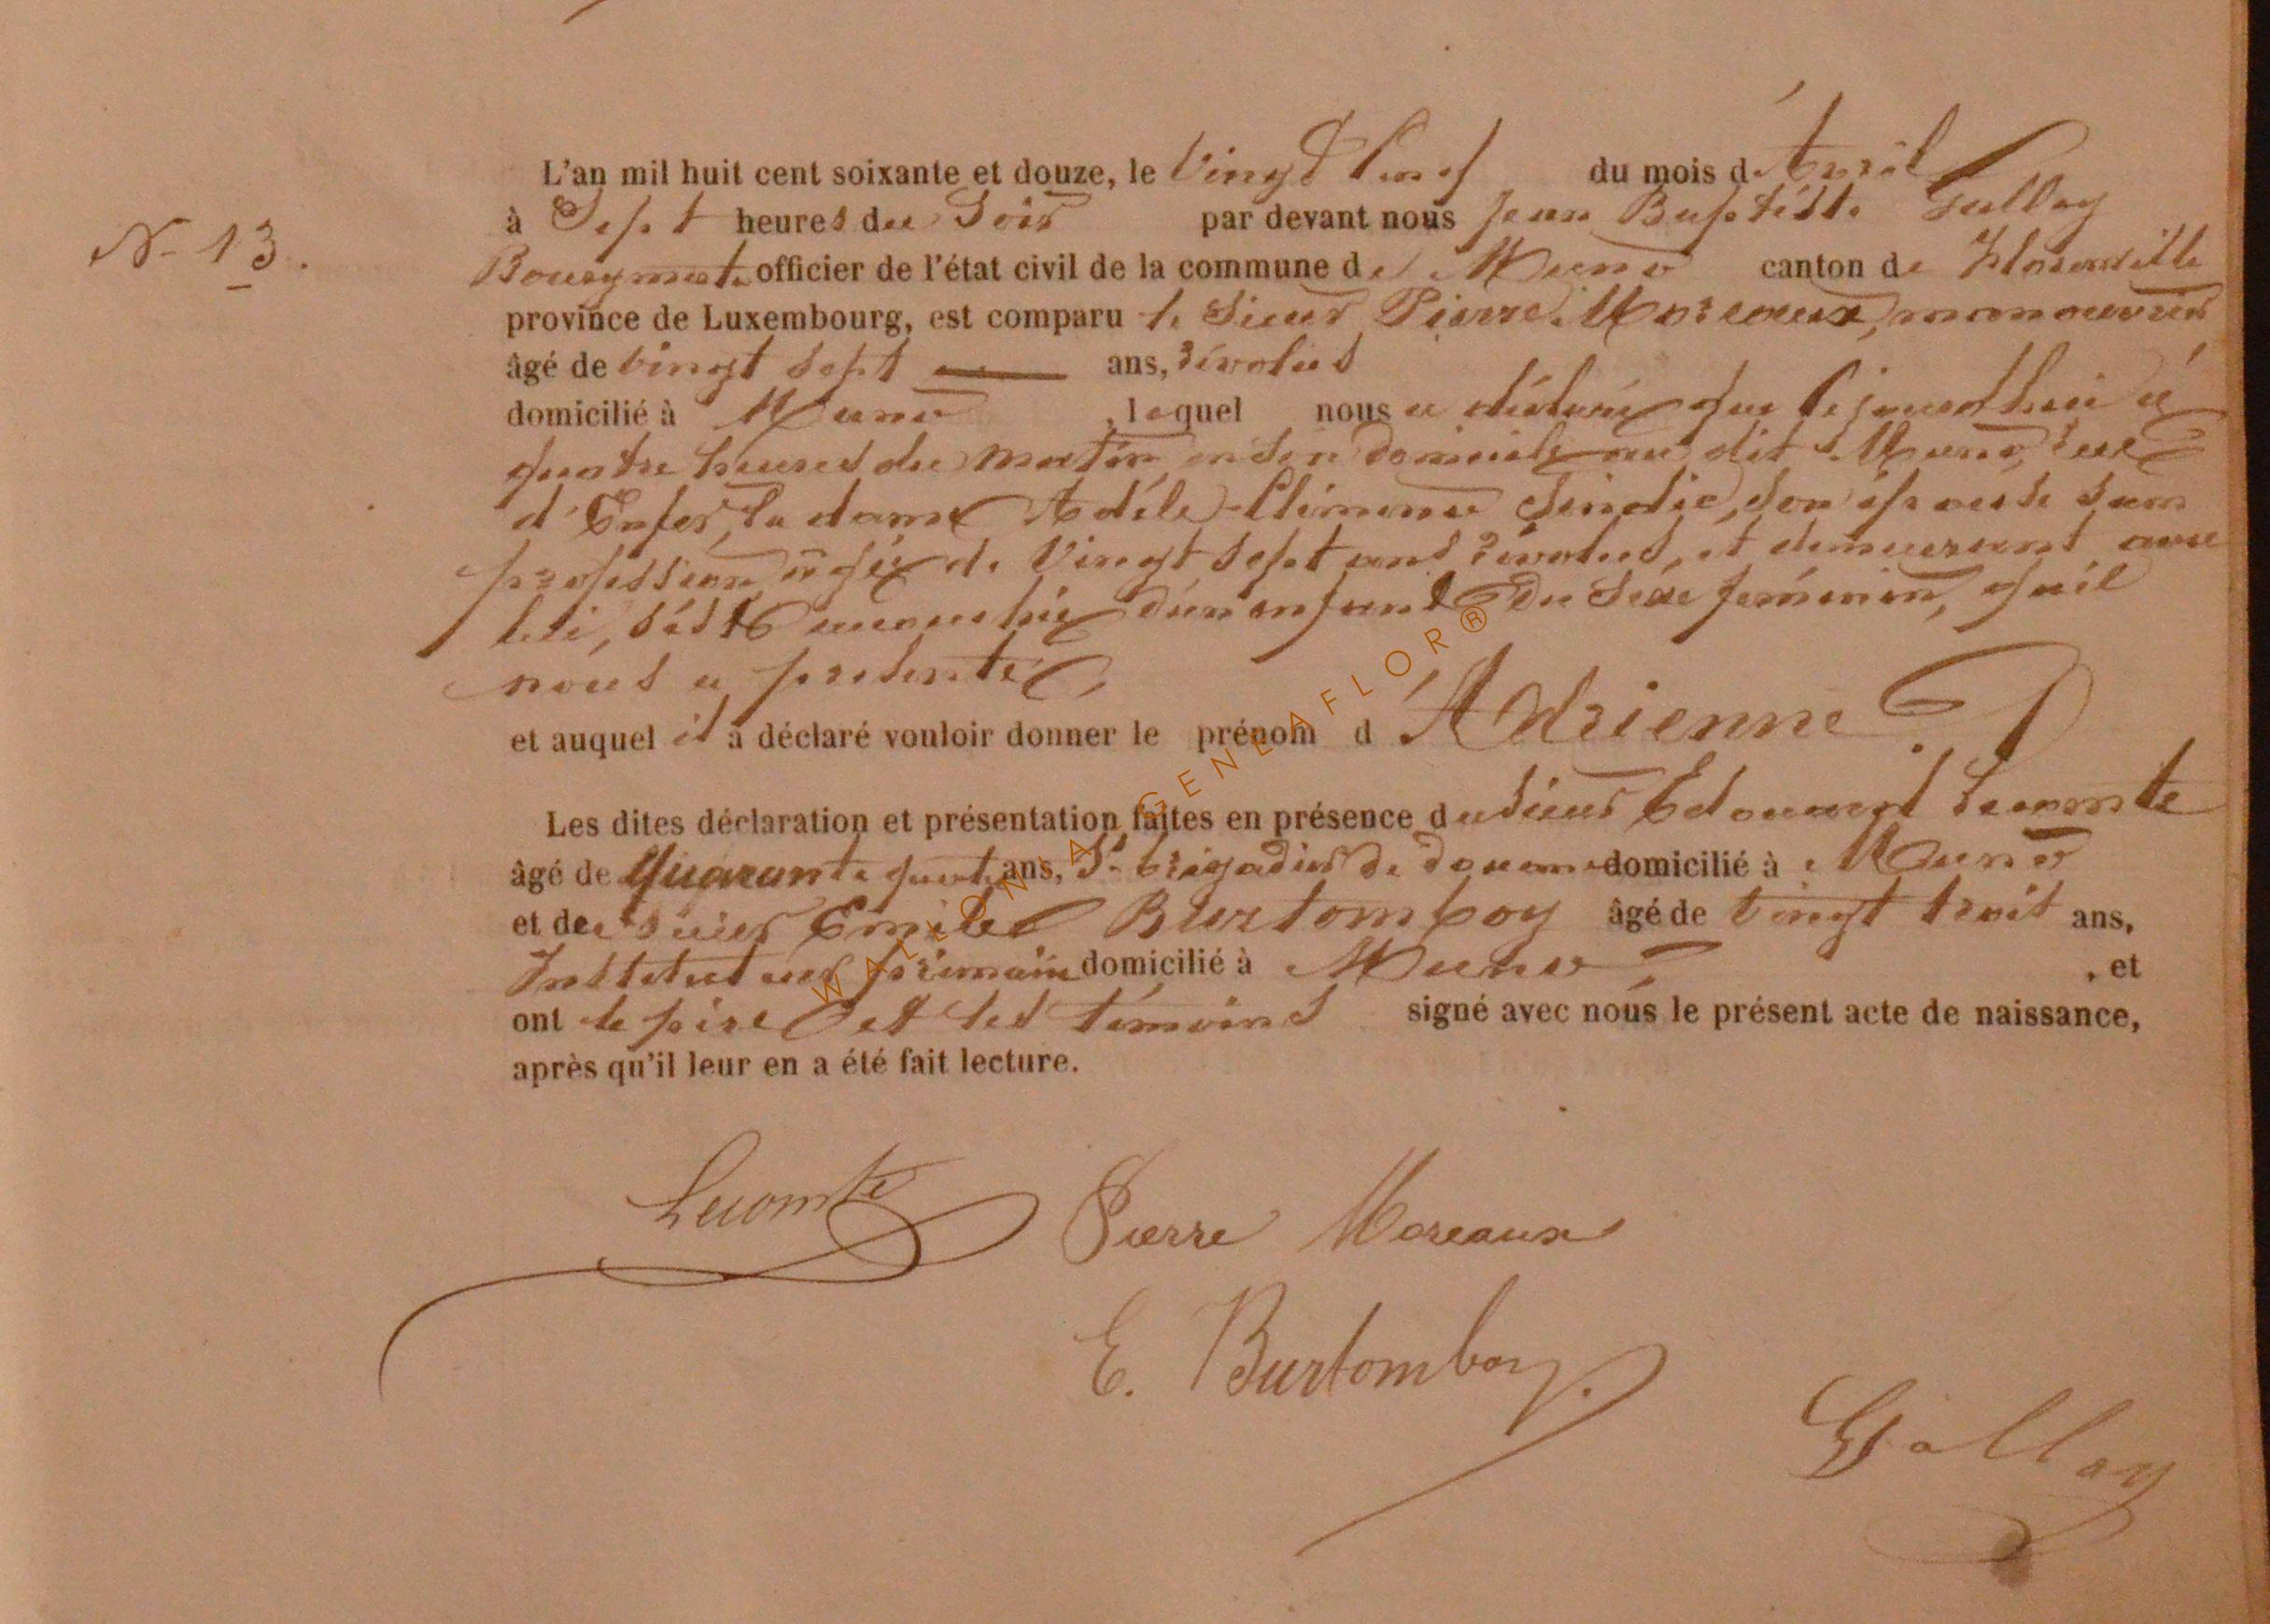 L'an mil huit cent soixante et douze, le Vingt Cinq du mois d'Avril
N° 13.
à Sept heures du Soir par devant nous Jean Baptiste Gallay
Bourgmestre officier de l'état civil de la commune de Muno canton de Florenville
province de Luxembourg, est comparu le Sieur Pierre Moreaux, manouvrier
âgé de vingt sept ans, révolus
domicilié à Muno, lequel nous a déclaré que cejourd'hui à
quatre heures du matin en son domicile au dit Muno, rue
d'Enfer, la dame Adéle Climene Sindic, son épouse sans
profession âgée de Vingt sept ans révolus, et demeurant avec
lui, s'est accouchée d'un enfant du Sexe féminin, qu'il
nous a présenté,
et auquel il a déclaré vouloir donner le prénom d'Adrienne.
Les dites déclaration et présentation faites en présence du sieur Edouard Lecomte
âgé de Quarante quatre ans, Ss brigadier de douane domicilié à Muno
et du sieur Emile Burtomboy âgé de vingt trois ans,
Instituteur primaire domicilié à Muno, et
ont le père et les témoins signé avec nous le présent acte de naissance,
après qu'il leur en a été fait lecture.
Lecomte Pierre Moreaux
E. Burtomboy.
Gallay
WALLONIA GENEAFLOR®